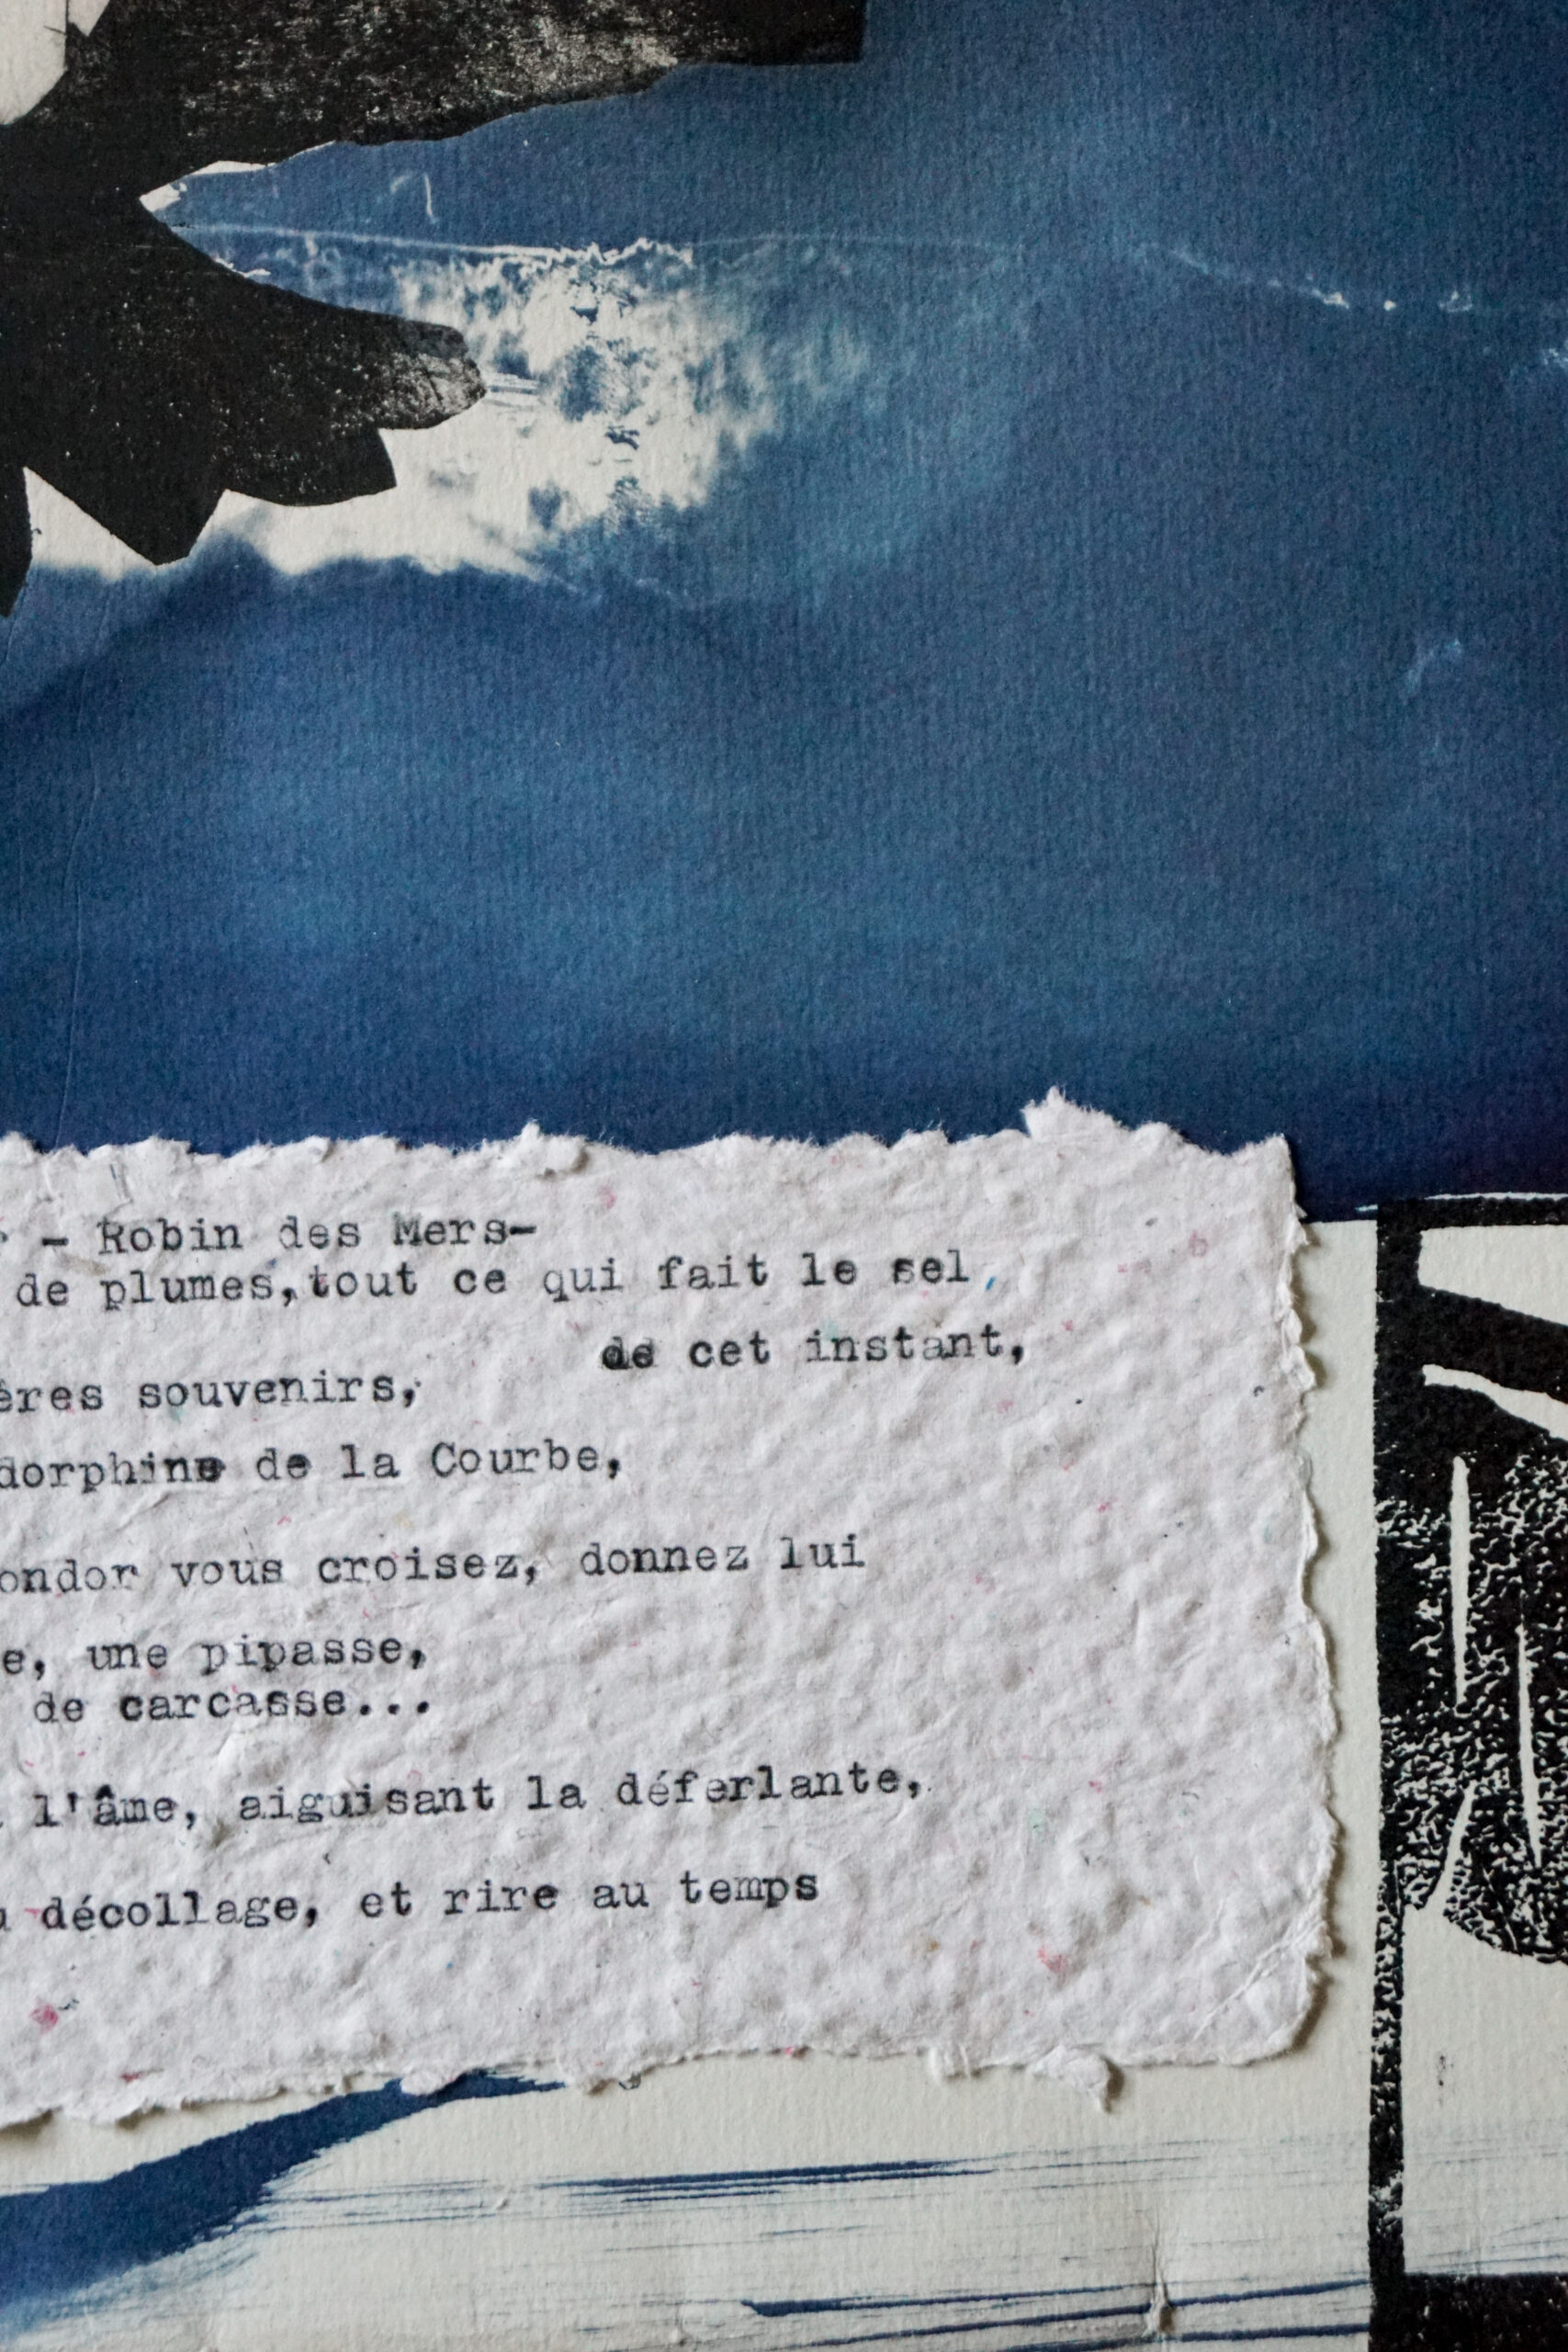 - Robin des Mers-
de plumes,tout ce qui fait le sel
de cet instant,
ères souvenirs,
dorphine de la Courbe,
ondor vous croisez, donnez lui
e, une pipasse,
de carcasse...
l'âme, aiguisant la déferlante,
décollage, et rire au temps